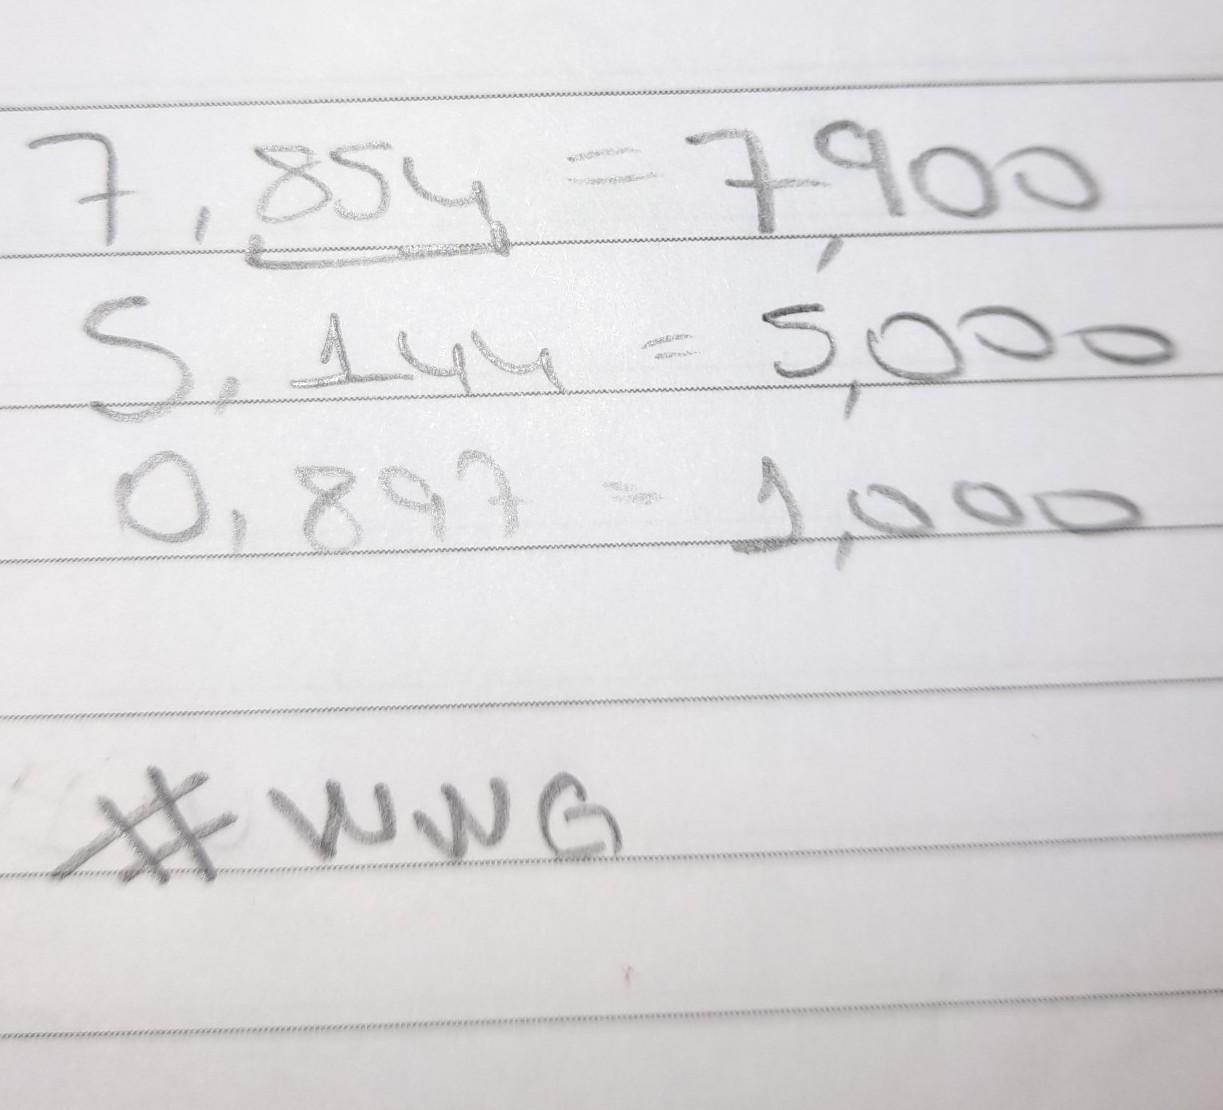 7,854 = 7,900
5,144 = 5,000
0,897 = 1,000
# WWG